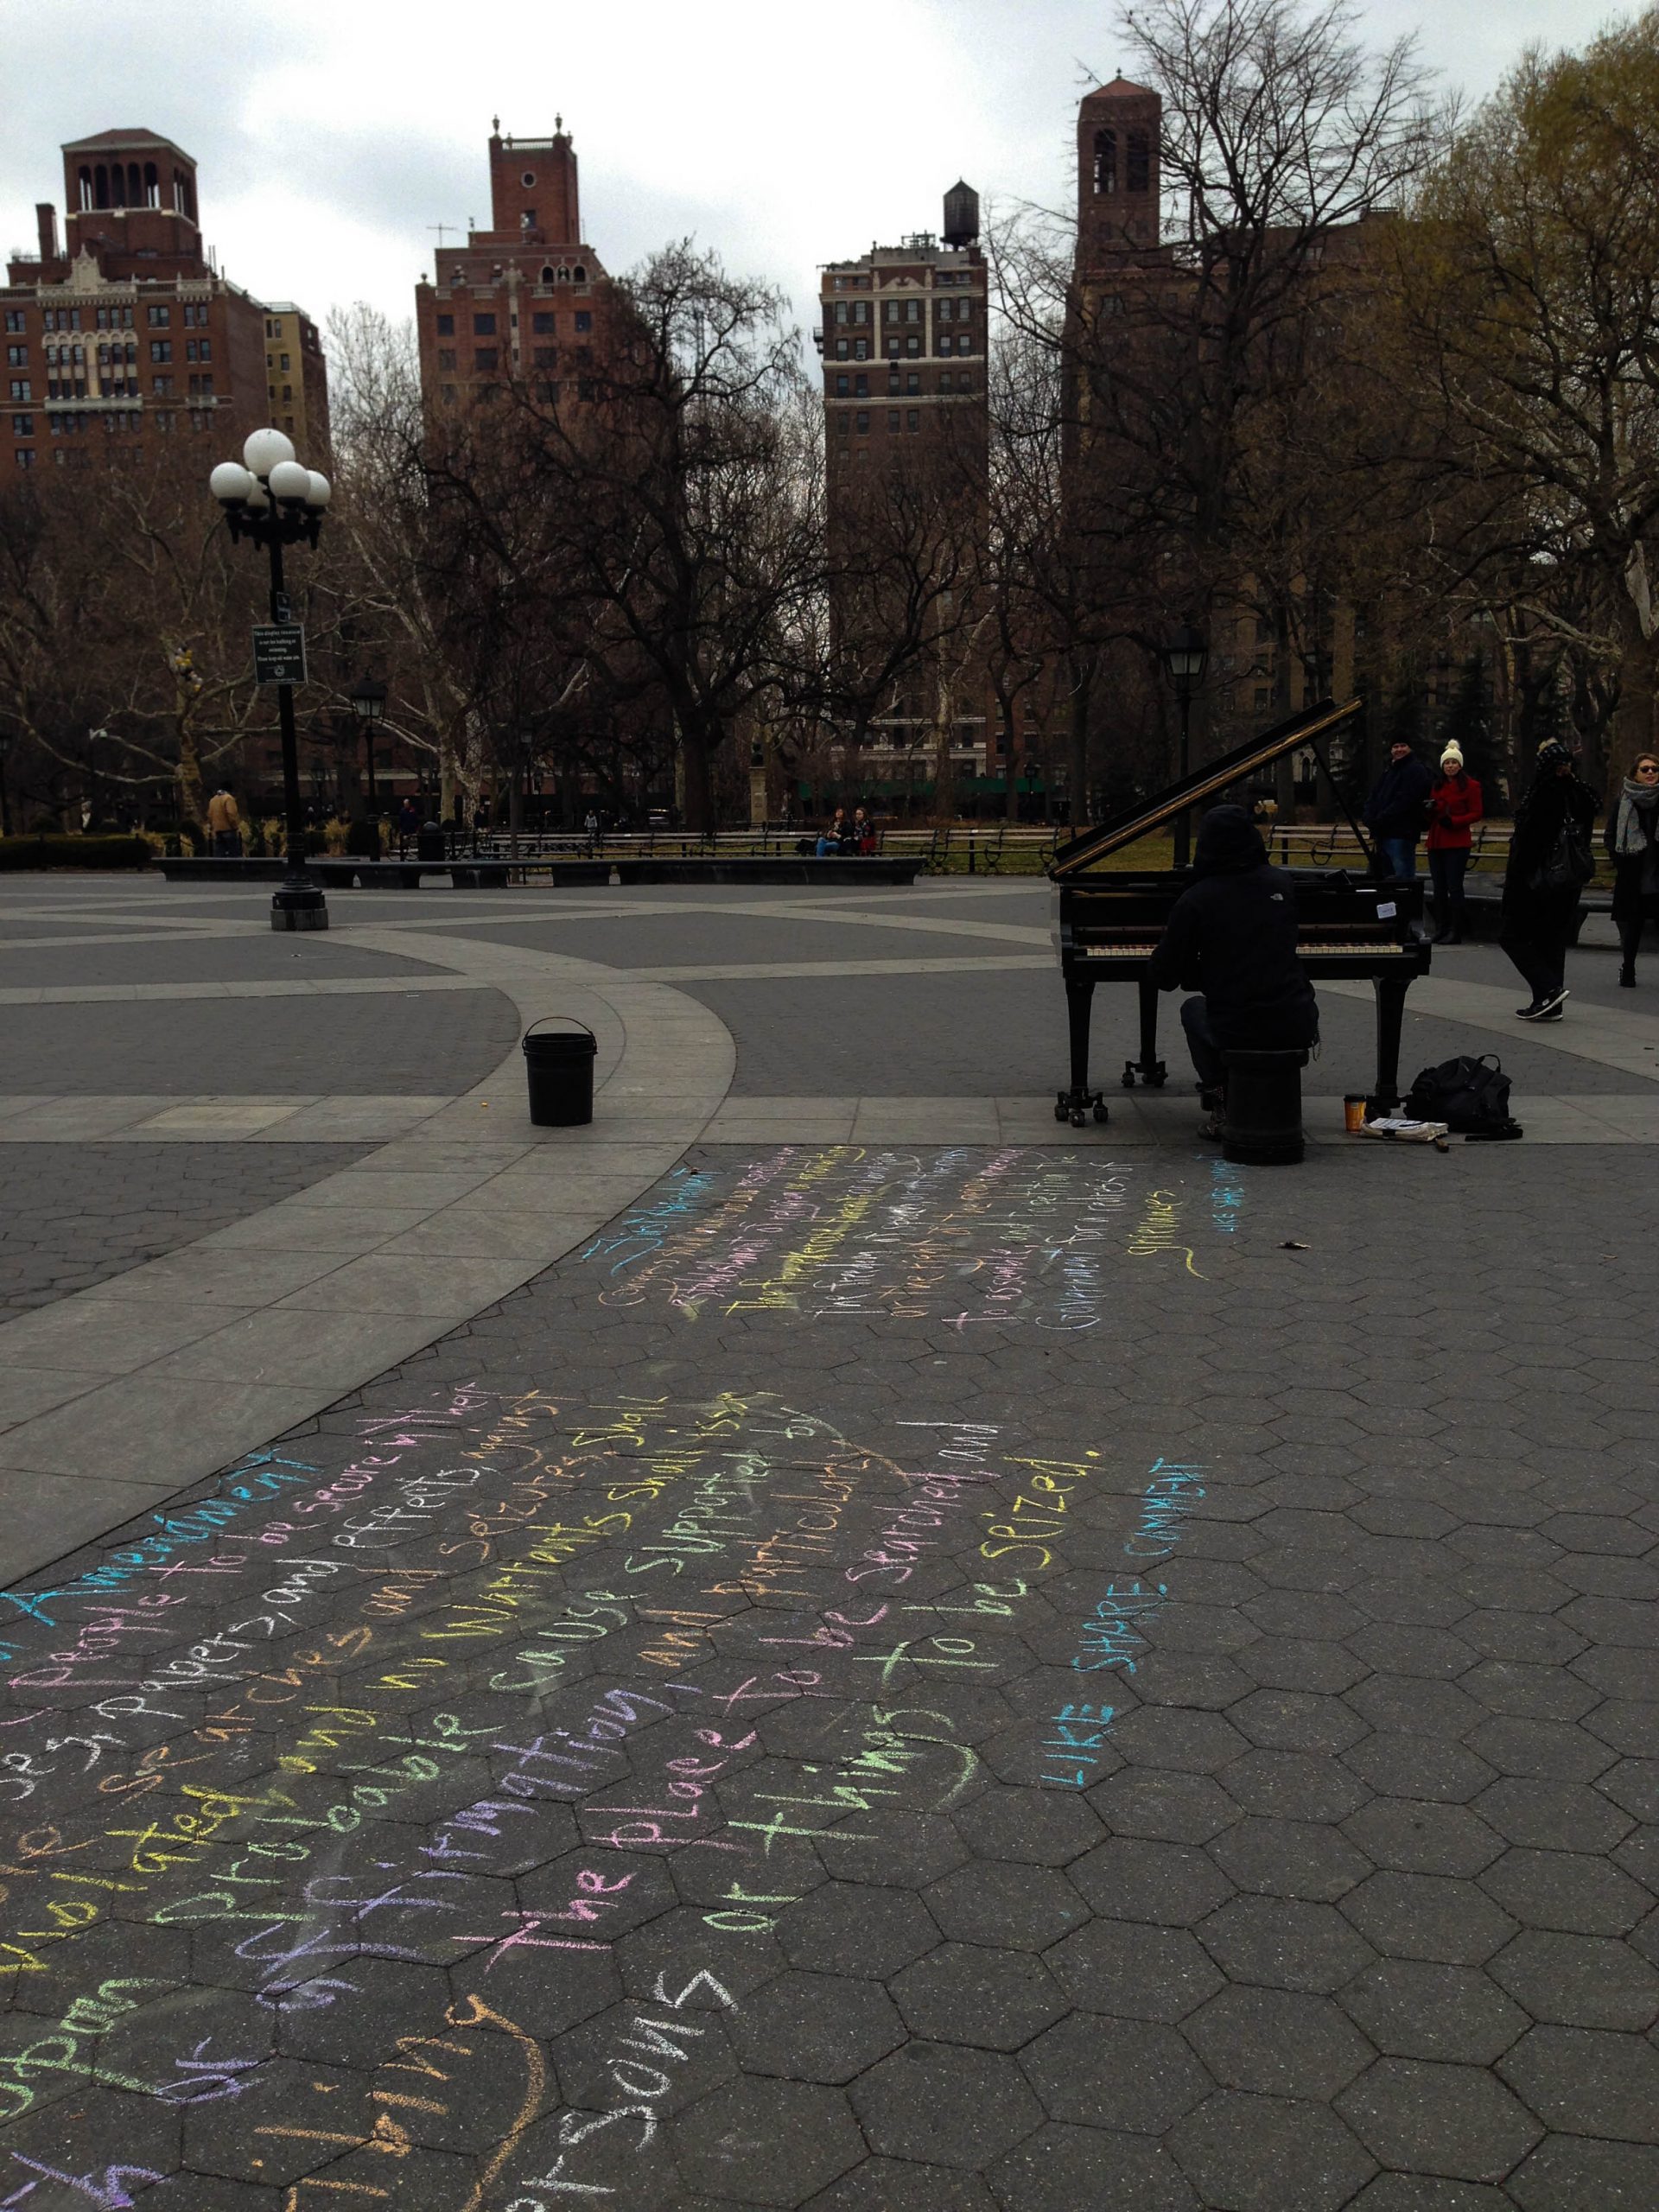 This display fountain
is not for bathing or
swimming
1st Amendment
Congress shall make no law respecting
establishment of religion or prohibiting
The free exercise thereof
The freedom of
or the right of
To assemble, and to petition the
Government for a redress
grievances
LIKE SHARE
Amendment
People to be secure in their
papers, and effects, against
searches and seizures, shall
violated, and no warrants shall issue
upon probable cause supported by
or affirmation, and particularly
the place to be searched, and
or things to be seized.
LIKE SHARE COMMENT